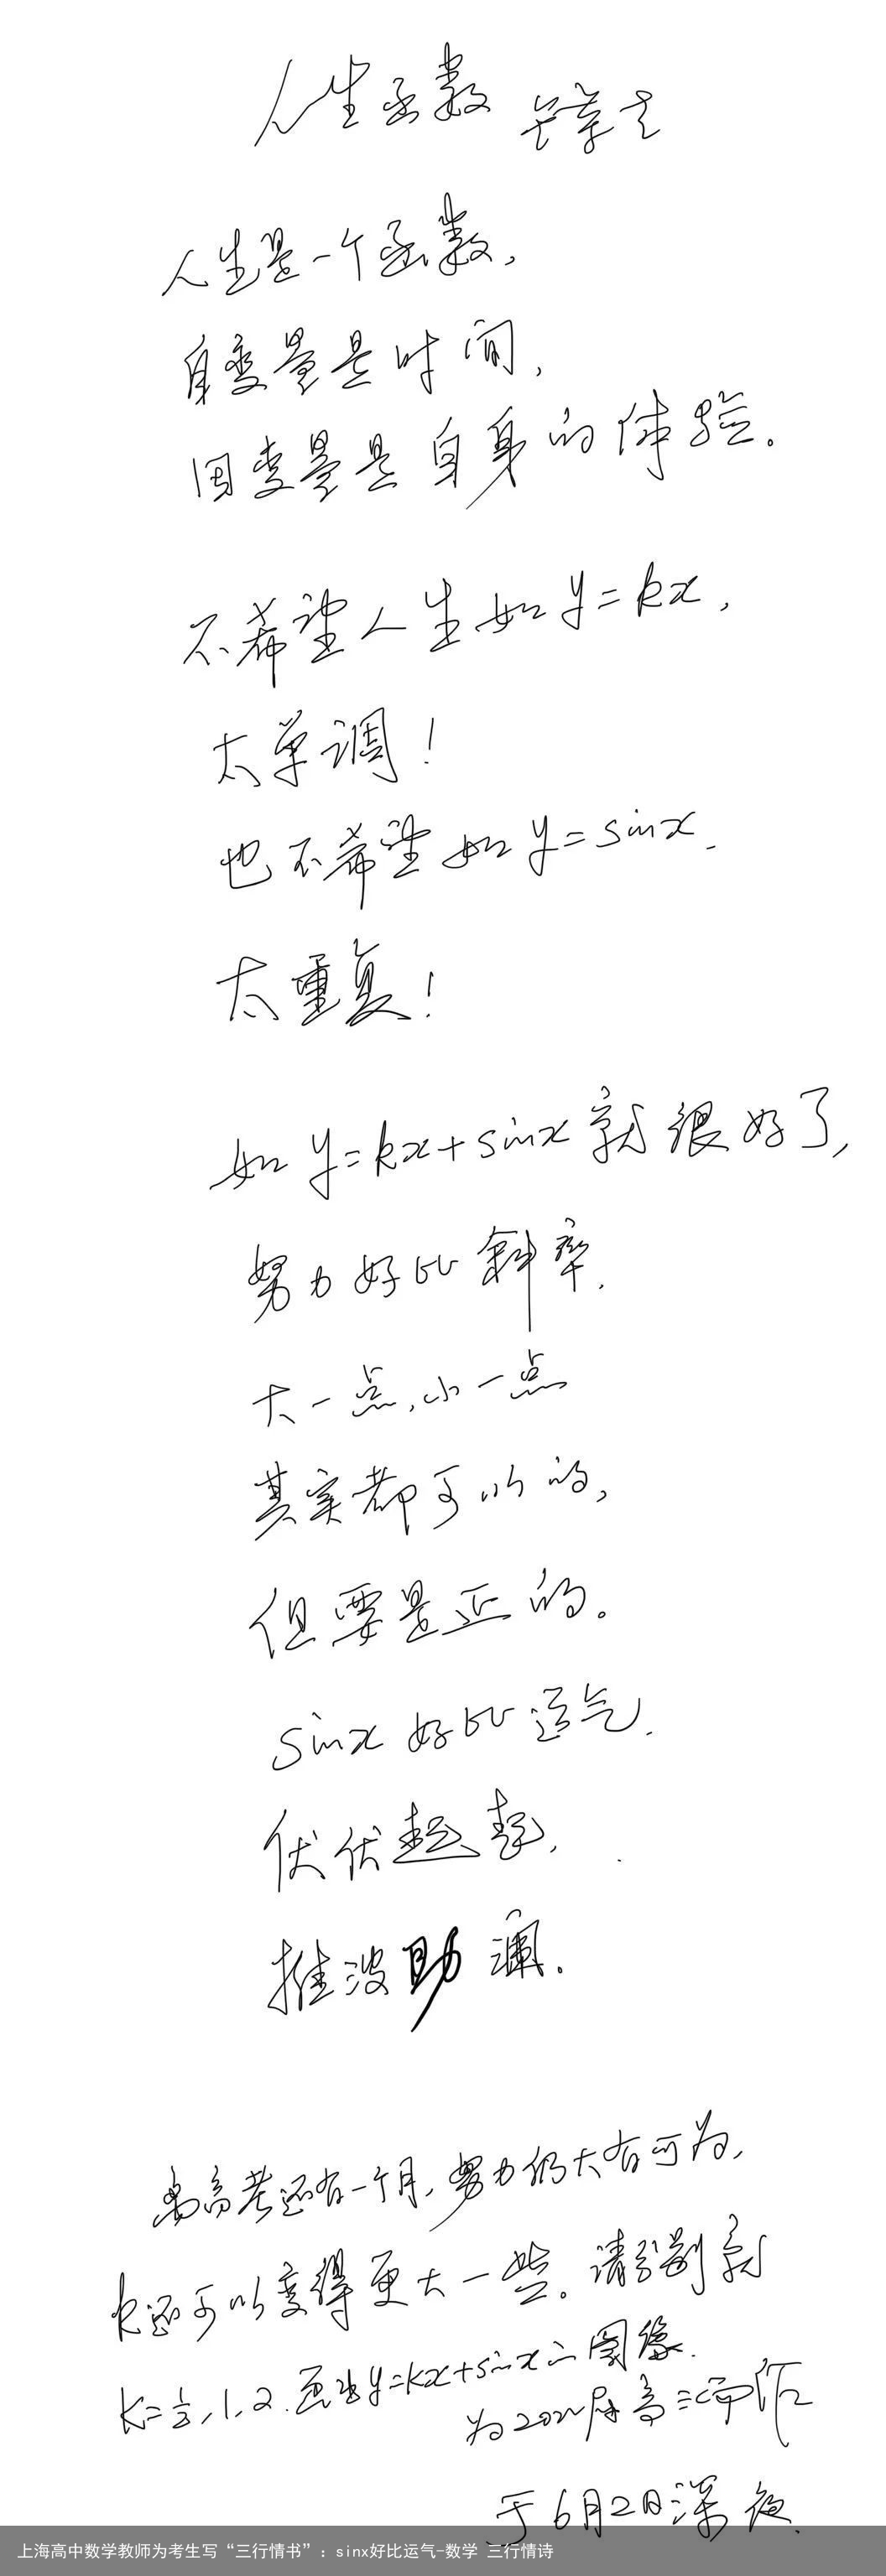 人生函数
人生是一个函数,
自变量是时间,
因变量是自身的体验。
不希望人生如y=kx,
太单调!
也不希望如y=sinx.
太重复!
如y=kx+sinx就很好了,
努力好比斜率.
大一点,小一点
其实都可以的,
但要是正的。
sinx好比运气.
伏伏起起,
推波助澜.
离高考还有一个月,努力仍大有可为,
k还可以变得更大一些。请分别就
k=1/2,1,2.画出y=kx+sinx的图像.
为2022届高三而作
于6月2日深夜.
上海高中数学教师为考生写“三行情书”：sinx好比运气-数学 三行情诗